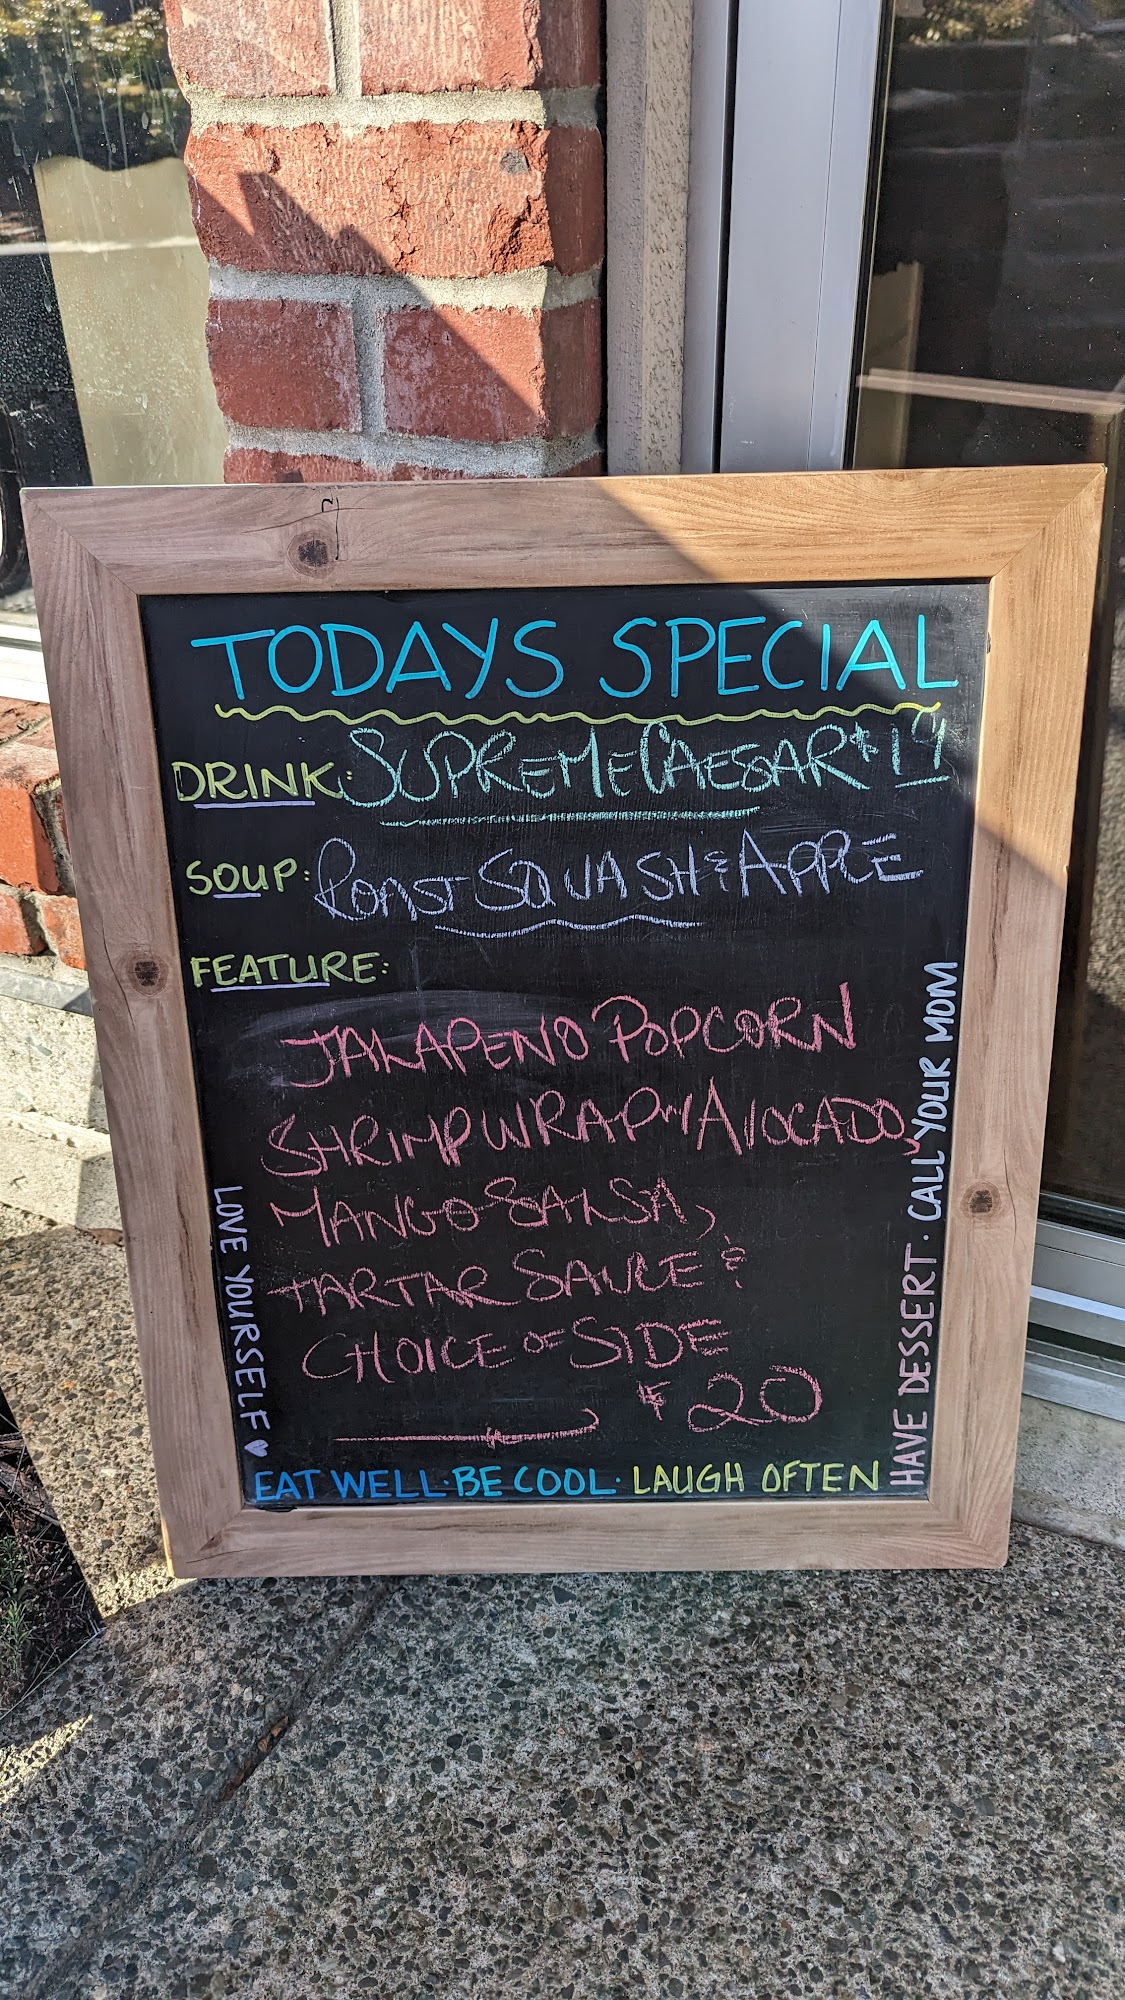 TODAYS SPECIAL
DRINK: SUPREME CAESAR $19
SOUP: ROAST SQUASH & APPLE
FEATURE:
JALAPENO POPCORN
SHRIMP WRAP W/ AVOCADO,
MANGO SALSA,
TARTAR SAUCE &
CHOICE OF SIDE
$20
LOVE YOURSELF ♥
EAT WELL · BE COOL · LAUGH OFTEN
HAVE DESSERT · CALL YOUR MOM